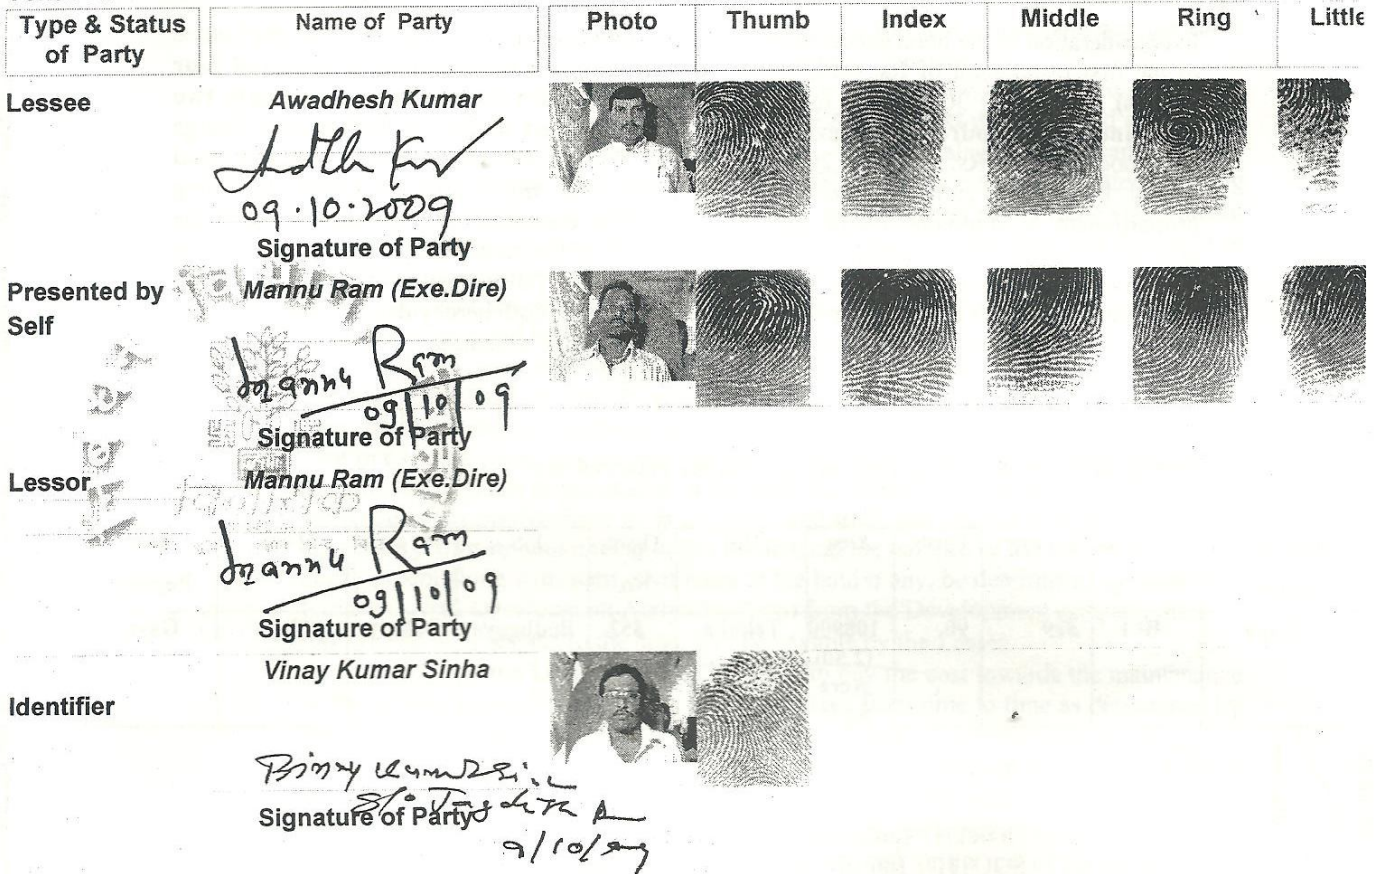 Type & Status of Party
Name of Party
Photo
Thumb
Index
Middle
Ring
Little
Lessee
Awadhesh Kumar
09.10.2009
Signature of Party
Presented by Self
Mannu Ram (Exe.Dire)
Mannu Ram
09/10/09
Signature of Party
Lessor
Mannu Ram (Exe.Dire)
Mannu Ram
09/10/09
Signature of Party
Identifier
Vinay Kumar Sinha
Binay Kumar Sinha
S/o Jagdish
Signature of Party
9/10/09